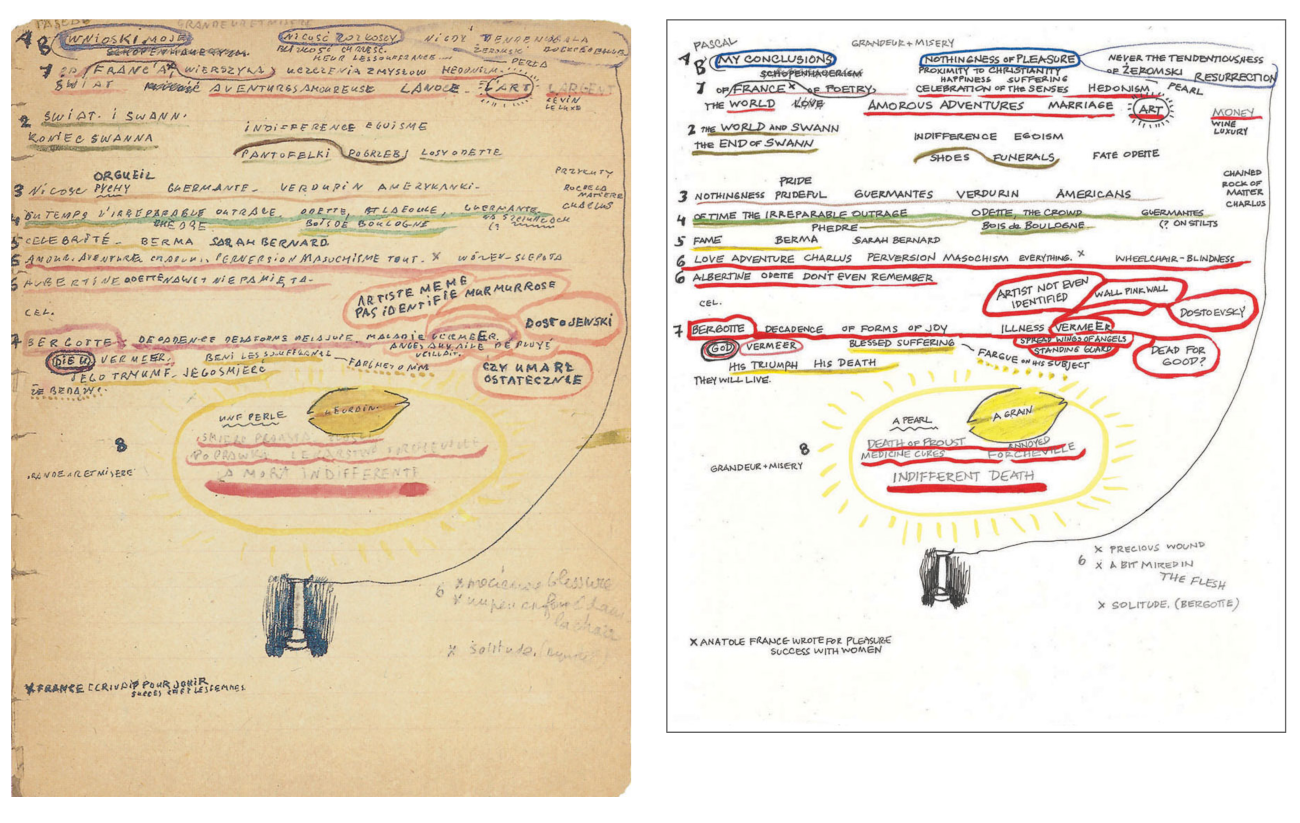 GRANDEUR ET MISERE
4 B WNIOSKI MOJE NICOŚĆ ROZKOSZY NIGDY
BLIZKOŚĆ CHRZEŚC.
PERŁA
WIERSZYKI UCZCZENIA ZMYSŁÓW HEDONIZM
ŚWIAT AVENTURES AMOUREUSE L'ART L'ARGENT
2 ŚWIAT. I SWANN.
INDIFFERENCE EGOISME
KONIEC SWANNA
PANTOFELKI POGRZEBY LOSY ODETTE
PRZYKUTY
ORGUEIL
3 NICOŚĆ PYCHY GUERMANTE VERDURIN AMERYKANKI
CHARLUS
4 DU TEMPS L'IRREPARABLE OUTRAGE, ODETTE, GUERMANTE
PHEDRE BOIS DE BOULOGNE
5 CELEBRITÉ BERMA SARAH BERNARD
6 AMOUR AVENTURE CHARLUS PERVERSION MASOCHISME TOUT. X WÓZEK-ŚLEPOTA
6 ALBERTINE ODETTE NAWET NIE PAMIĘTA
ARTISTE MEME
PAS IDENTIFIE MUR MUR ROSE
CEL.
DOSTOJEWSKI
7 BERGOTTE DECADENCE MALADIE VERMEER
DIEU VERMEER. BENI LES SOUFFRANCE
JEGO TRYUMF. JEGO ŚMIERĆ
CZY UMARŁ
OSTATECZNIE
ŻE BĘDĄ
UNE PERLE LE GRAIN
8
ŚMIERĆ PROUSTA
FORCHEVILLE
GRANDEUR ET MISERE
LA MORT INDIFFERENTE
6 X blessure
X un peu enfoncé dans
la chair
X Solitude.
X FRANCE ECRIVAIT POUR JOUIR
SUCCES CHEZ LES FEMMES
PASCAL GRANDEUR + MISERY
4 B MY CONCLUSIONS NOTHINGNESS OF PLEASURE NEVER THE TENDENTIOUSNESS
SCHOPENHAUERISM PROXIMITY TO CHRISTIANITY OF ŻEROMSKI RESURRECTION
HAPPINESS SUFFERING
7 OF FRANCE X OF POETRY, CELEBRATION OF THE SENSES HEDONISM, PEARL
THE WORLD LOVE AMOROUS ADVENTURES MARRIAGE ART MONEY
WINE
LUXURY
2 THE WORLD AND SWANN
INDIFFERENCE EGOISM
THE END OF SWANN
SHOES FUNERALS, FATE ODETTE
CHAINED
ROCK OF
MATTER
CHARLUS
PRIDE
3 NOTHINGNESS PRIDEFUL GUERMANTES VERDURIN AMERICANS
4 OF TIME THE IRREPARABLE OUTRAGE ODETTE, THE CROWD GUERMANTES
PHEDRE BOIS de BOULOGNE (? ON STILTS
5 FAME BERMA SARAH BERNARD
6 LOVE ADVENTURE CHARLUS PERVERSION MASOCHISM EVERYTHING. X WHEELCHAIR-BLINDNESS
6 ALBERTINE ODETTE DON'T EVEN REMEMBER
ARTIST NOT EVEN
IDENTIFIED
WALL PINK WALL
CEL.
DOSTOEVSKY
7 BERGOTTE DECADENCE OF FORMS OF JOY ILLNESS VERMEER
GOD VERMEER BLESSED SUFFERING SPREAD WINGS OF ANGELS
STANDING GUARD
FARGUE ON HIS SUBJECT
DEAD FOR
GOOD?
HIS TRIUMPH HIS DEATH
THEY WILL LIVE.
A PEARL A GRAIN
8
DEATH OF PROUST ANNOYED
MEDICINE CURES FORCHEVILLE
GRANDEUR + MISERY
INDIFFERENT DEATH
X PRECIOUS WOUND
6 X A BIT MIRED IN
THE FLESH
X SOLITUDE. (BERGOTTE)
X ANATOLE FRANCE WROTE FOR PLEASURE
SUCCESS WITH WOMEN